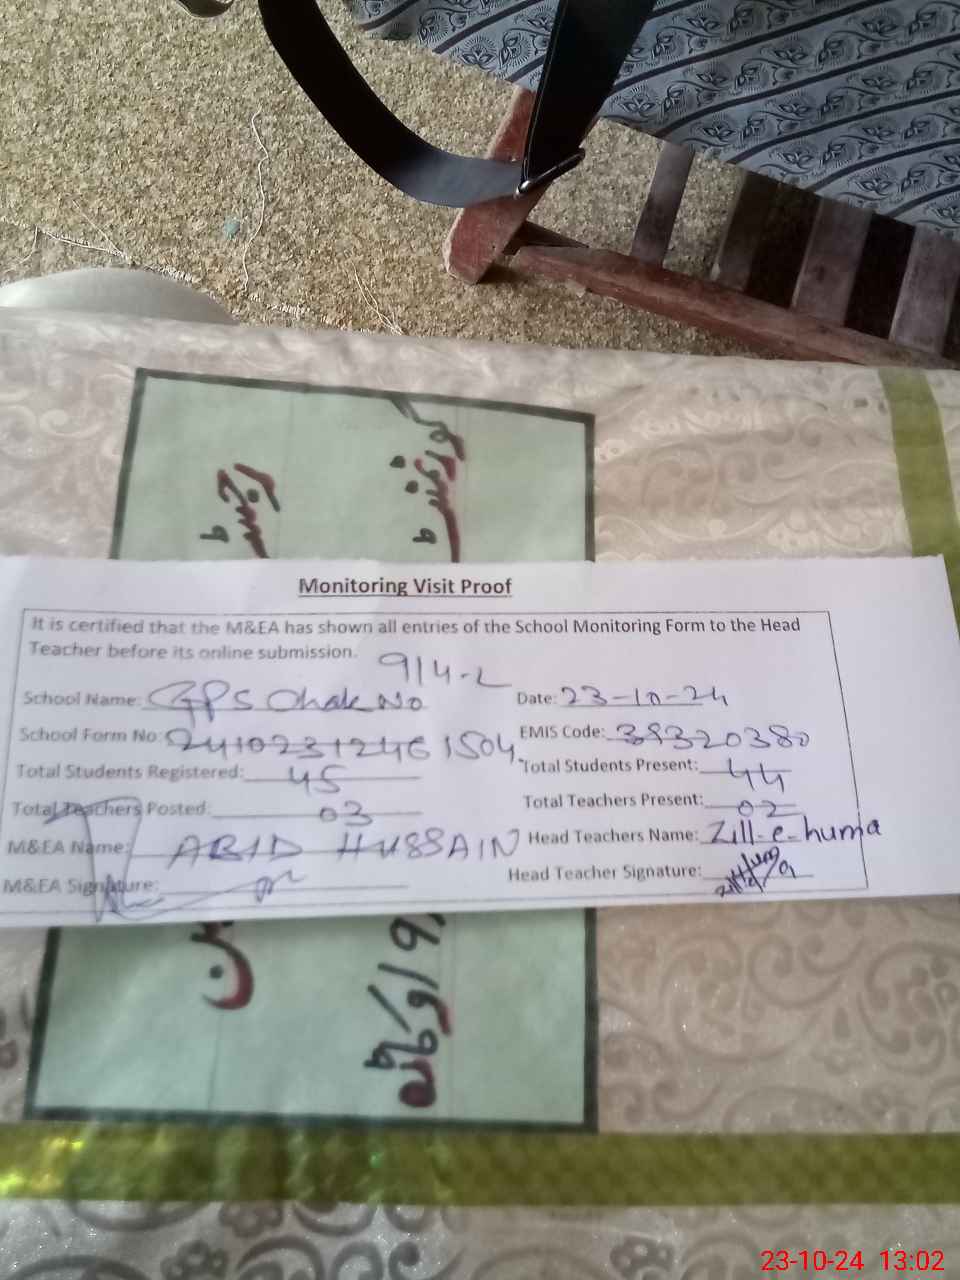 گورنمنٹ
Monitoring Visit Proof
It is certified that the M&EA has shown all entries of the School Monitoring Form to the Head
Teacher before its online submission.
School Name: GPS Chak No 9/4-L Date: 23-10-24
School Form No: 24102312461504 EMIS Code: 39320380
Total Students Registered: 45 Total Students Present: 44
Total Teachers Posted: 03 Total Teachers Present: 02
M&EA Name: ABID HUSSAIN Head Teachers Name: Zill-e-huma
M&EA Signature: Head Teacher Signature:
23-10-24 13:02